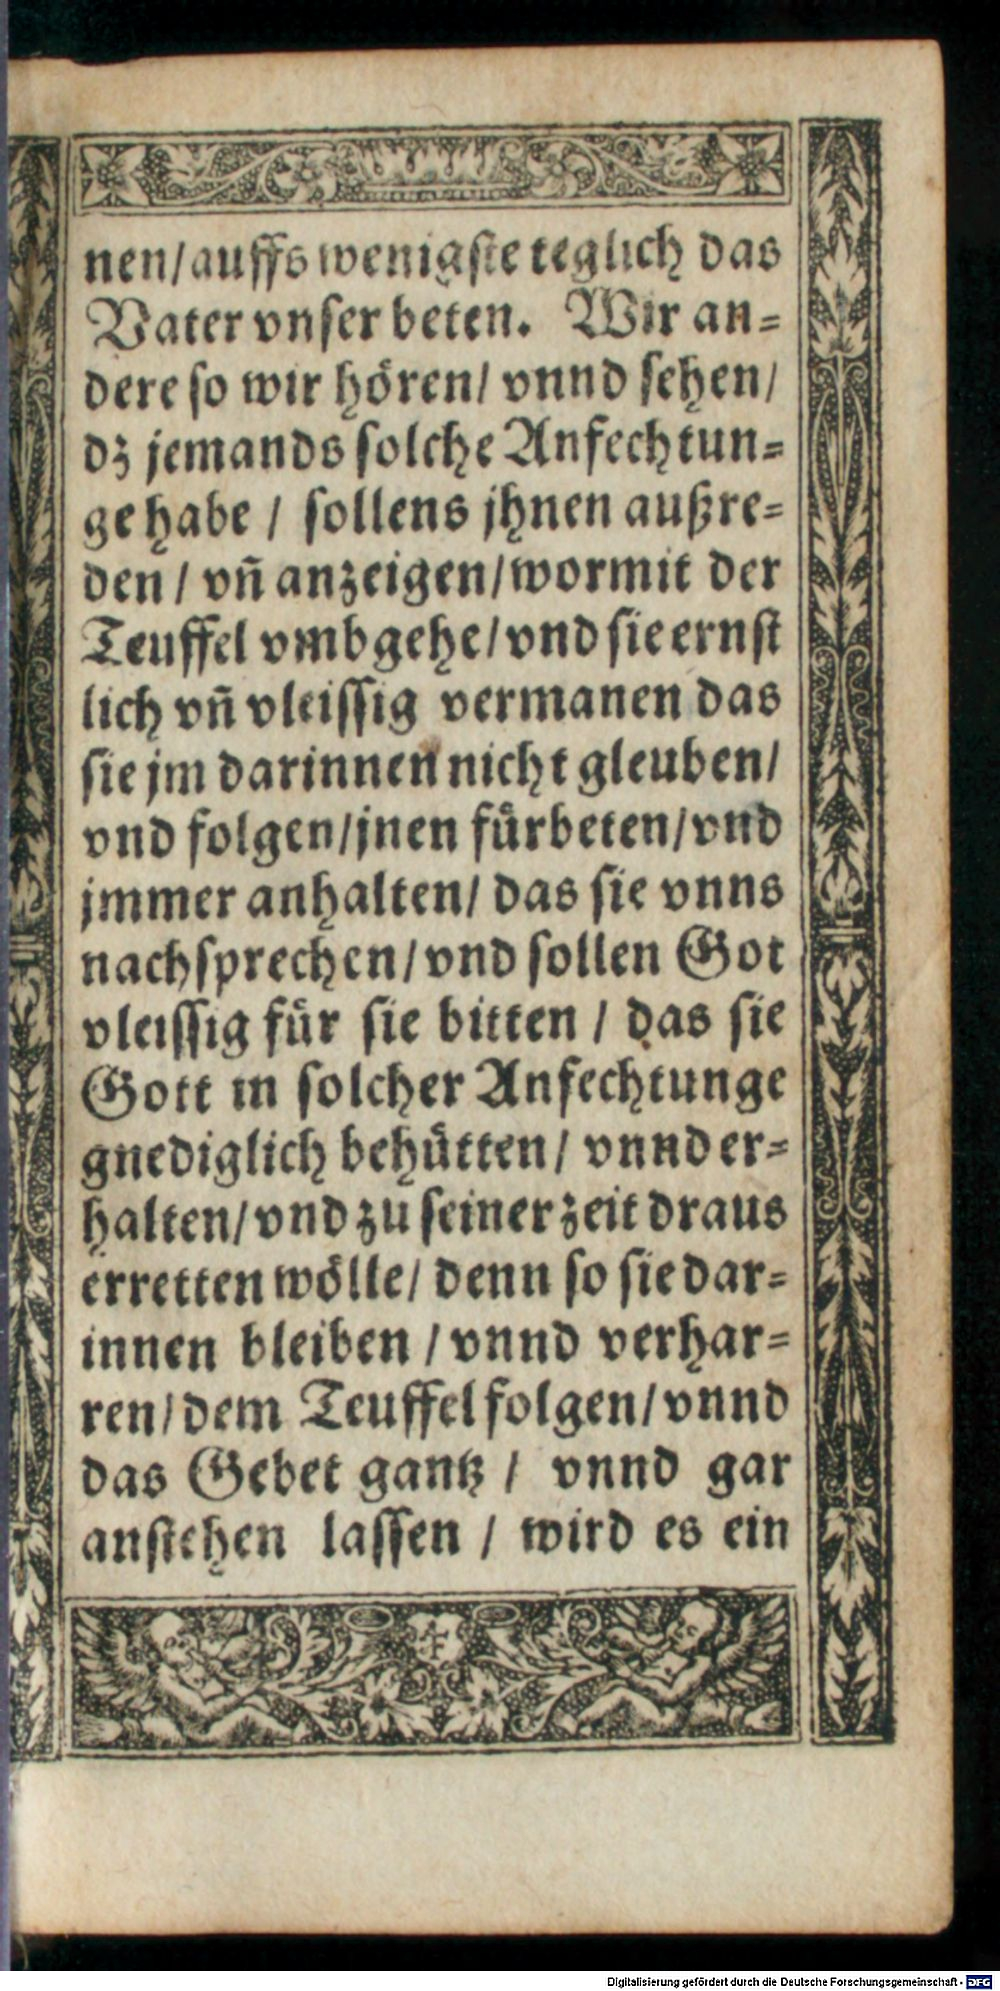 nen/auffs wenigste teglich das
Vater vnser beten. Wir an=
dere so wir hören/ vnnd sehen/
dz jemands solche Anfechtun=
ge habe / sollens jhnen außre=
den / vn̄ anzeigen/wormit der
Teuffel vmbgehe/vnd sie ernst
lich vn̄ vleissig vermanen das
sie jm darinnen nicht gleuben/
vnd folgen/jnen fürbeten/vnd
jmmer anhalten/ das sie vnns
nachsprechen/vnd sollen Got
vleissig für sie bitten / das sie
Gott in solcher Anfechtunge
gnediglich behütten/ vnnd er=
halten/vnd zu seiner zeit draus
erretten wölle/ denn so sie dar=
innen bleiben / vnnd verhar=
ren/dem Teuffel folgen/vnnd
das Gebet gantz / vnnd gar
anstehen lassen / wird es ein
Digitalisierung gefördert durch die Deutsche Forschungsgemeinschaft - DFG